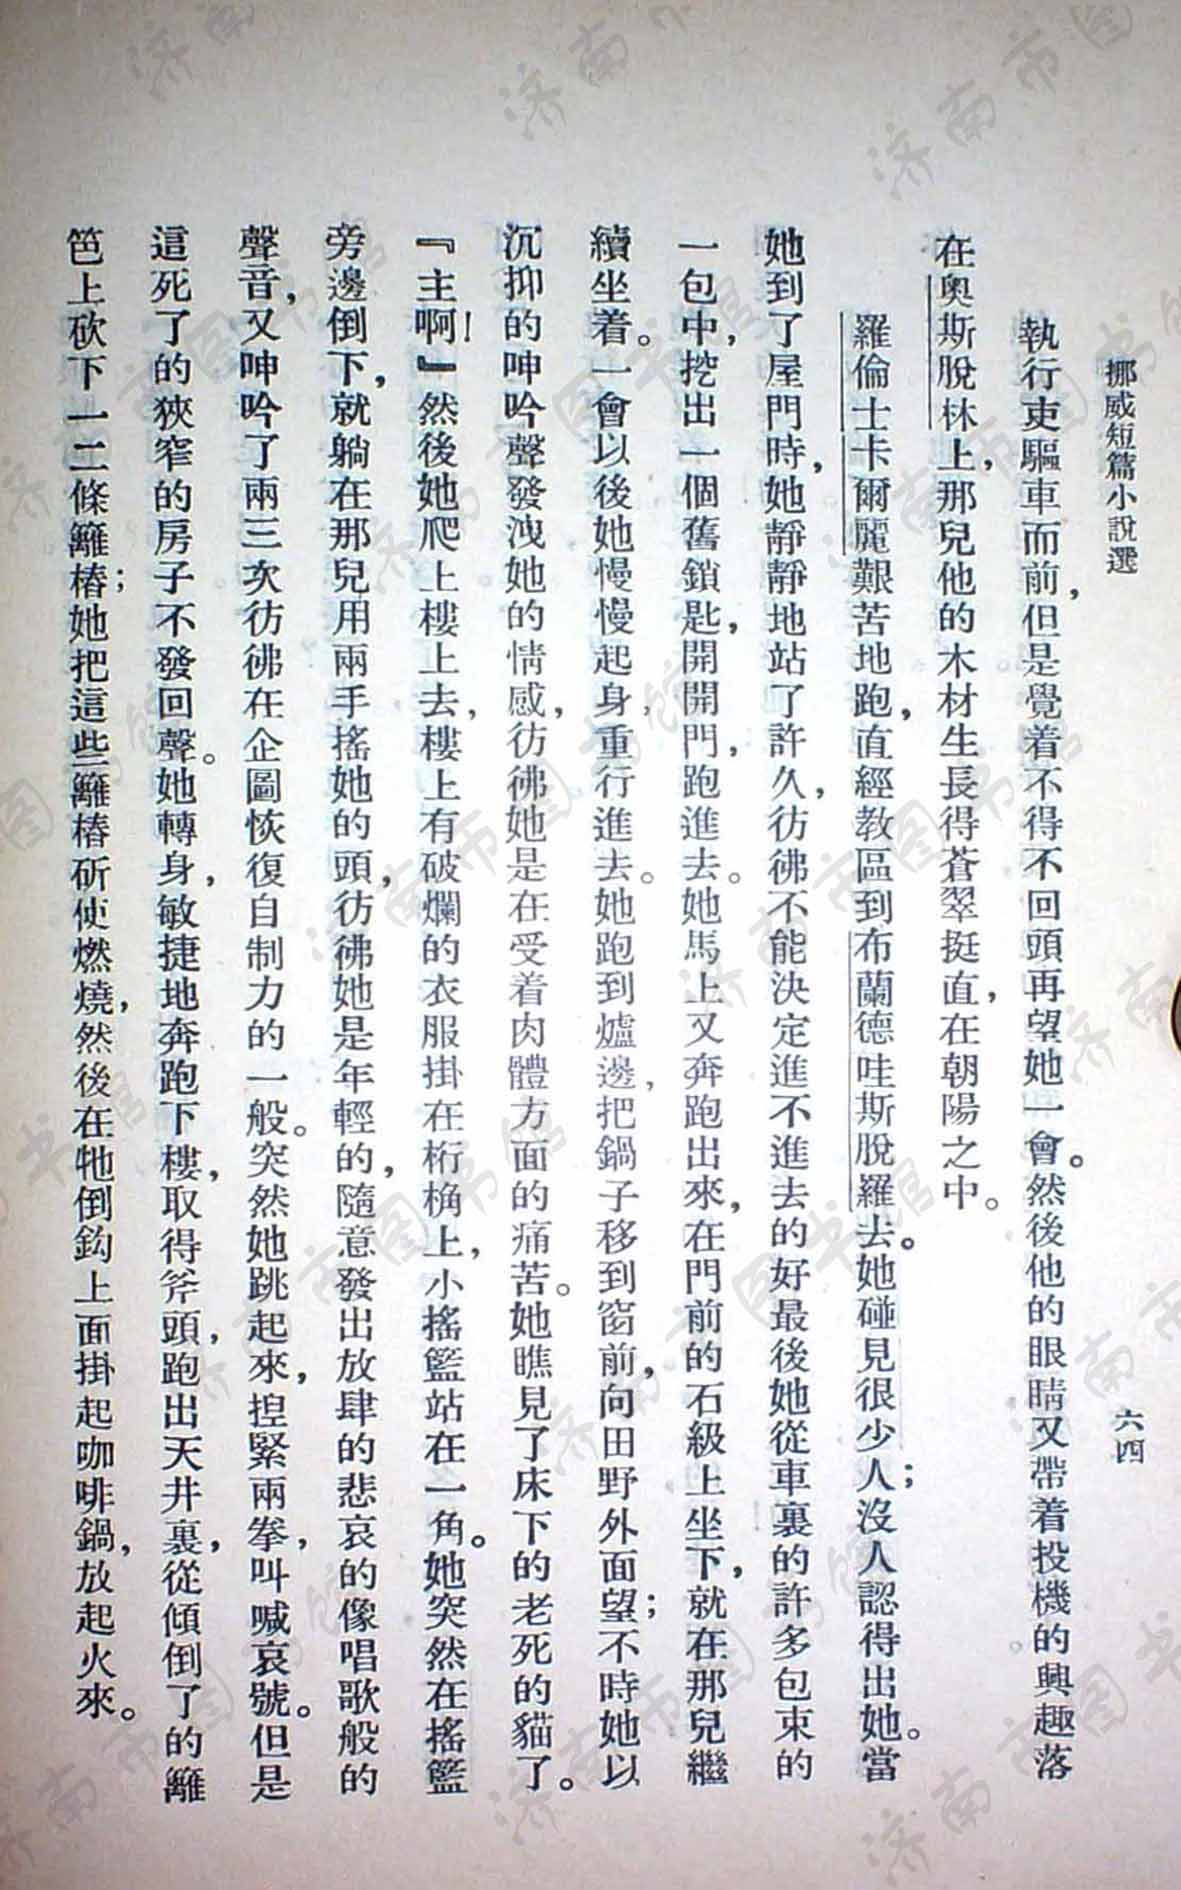 挪威短篇小說選
六四
執行吏驅車而前，但是覺着不得不回頭再望她一會。然後他的眼睛又帶着投機的興趣落
在奧斯脫林上，那兒他的木材生長得蒼翠挺直，在朝陽之中。
羅倫士卡爾麗艱苦地跑，直經教區到布蘭德哇斯脫羅去。她碰見很少人；沒人認得出她。當
她到了屋門時，她靜靜地站了許久，彷彿不能決定進不進去的好最後她從車裏的許多包束的
一包中，挖出一個舊鎖匙，開開門，跑進去。她馬上又奔跑出來，在門前的石級上坐下，就在那兒繼
續坐着。一會以後她慢慢起身，重行進去。她跑到爐邊，把鍋子移到窗前，向田野外面望；不時她以
沉抑的呻吟聲發洩她的情感，彷彿她是在受着肉體方面的痛苦。她瞧見了床下的老死的貓了。
『主啊！』然後她爬上樓上去，樓上有破爛的衣服掛在桁桷上，小搖籃站在一角。她突然在搖籃
旁邊倒下，就躺在那兒用兩手搖她的頭，彷彿她是年輕的，隨意發出放肆的悲哀的像唱歌般的
聲音，又呻吟了兩三次彷彿在企圖恢復自制力的一般。突然她跳起來，揑緊兩拳，叫喊哀號。但是
這死了的狹窄的房子不發回聲。她轉身，敏捷地奔跑下樓，取得斧頭，跑出天井裏，從傾倒了的籬
笆上砍下一二條籬樁；她把這些籬樁斫使燃燒，然後在牠倒鈎上面掛起咖啡鍋，放起火來。
济南市图书馆